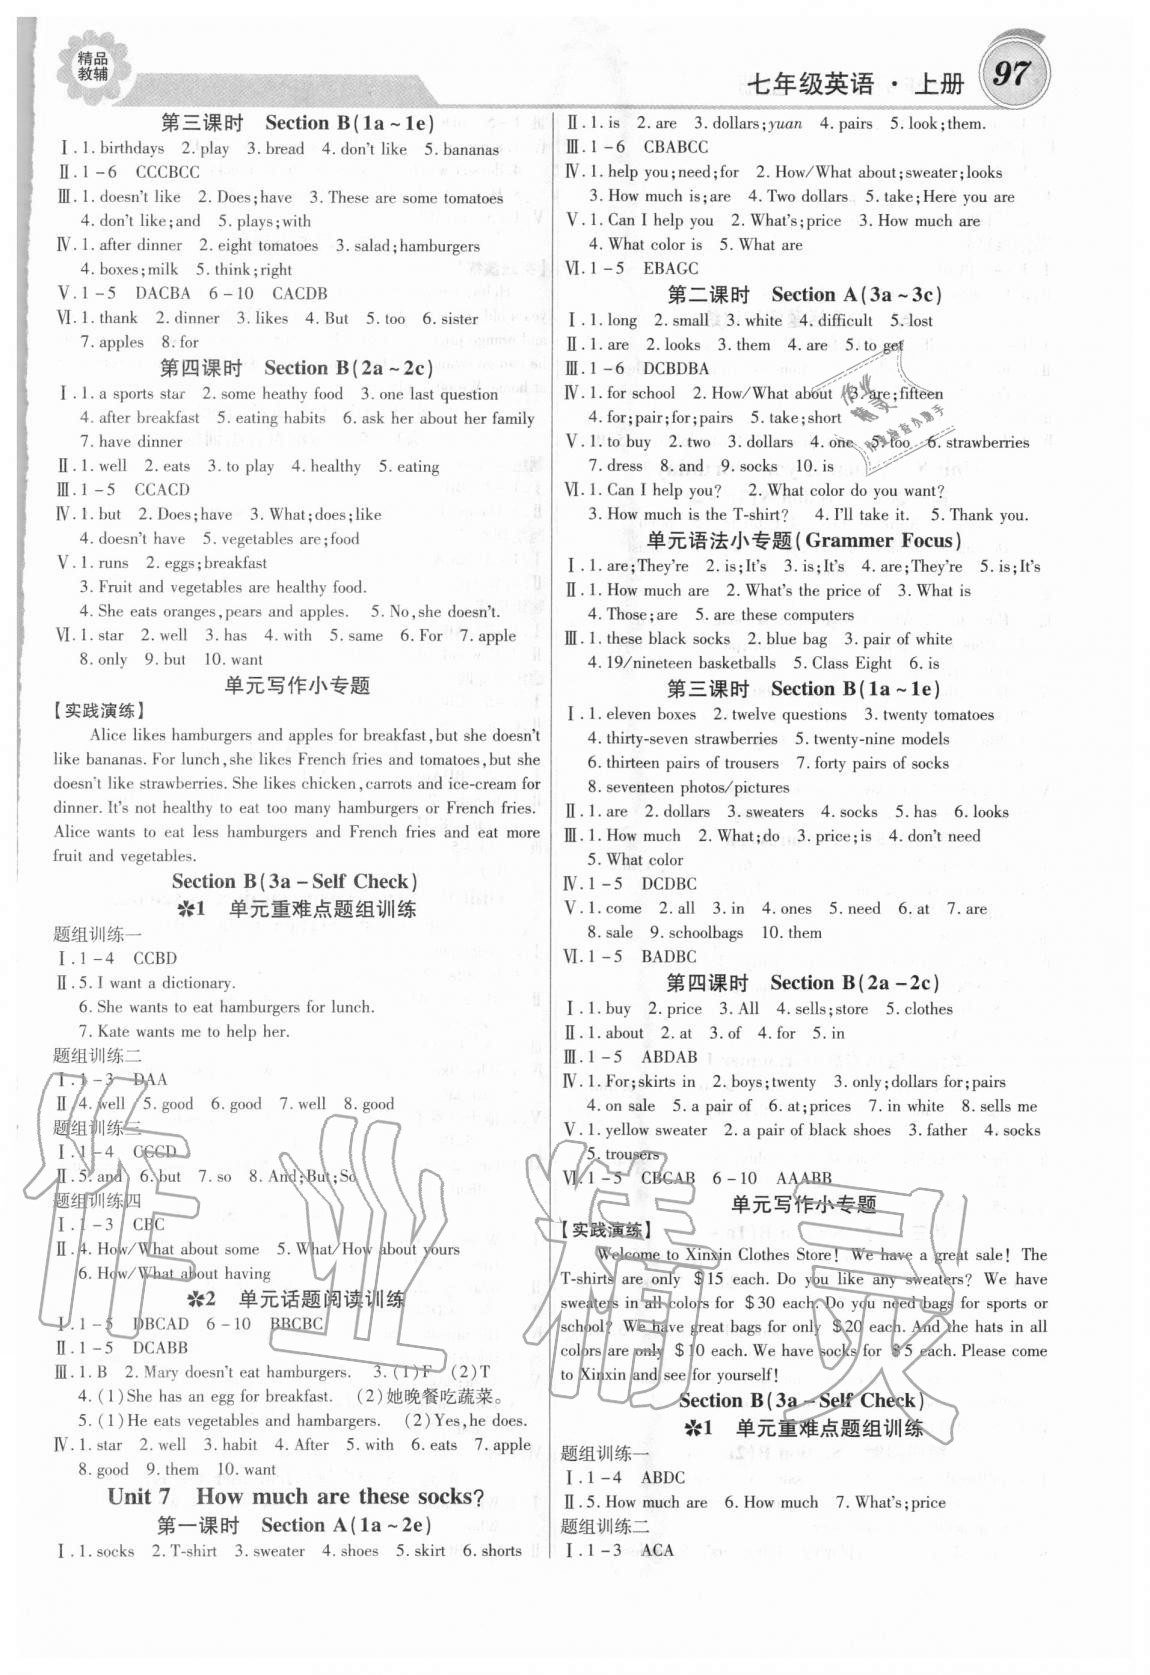 精品
教辅
七年级英语·上册
97
第三课时 Section B(1a~1e)
Ⅰ.1. birthdays 2. play 3. bread 4. don't like 5. bananas
Ⅱ.1-6 CCCBCC
Ⅲ.1. doesn't like 2. Does;have 3. These are some tomatoes
4. don't like;and 5. plays;with
Ⅳ.1. after dinner 2. eight tomatoes 3. salad;hamburgers
4. boxes;milk 5. think;right
Ⅴ.1-5 DACBA 6-10 CACDB
Ⅵ.1. thank 2. dinner 3. likes 4. But 5. too 6. sister
7. apples 8. for
第四课时 Section B(2a~2c)
Ⅰ.1. a sports star 2. some heathy food 3. one last question
4. after breakfast 5. eating habits 6. ask her about her family
7. have dinner
Ⅱ.1. well 2. eats 3. to play 4. healthy 5. eating
Ⅲ.1-5 CCACD
Ⅳ.1. but 2. Does;have 3. What;does;like
4. doesn't have 5. vegetables are;food
Ⅴ.1. runs 2. eggs;breakfast
3. Fruit and vegetables are healthy food.
4. She eats oranges,pears and apples. 5. No,she doesn't.
Ⅵ.1. star 2. well 3. has 4. with 5. same 6. For 7. apple
8. only 9. but 10. want
单元写作小专题
【实践演练】
Alice likes hamburgers and apples for breakfast,but she doesn't
like bananas. For lunch,she likes French fries and tomatoes,but she
doesn't like strawberries. She likes chicken,carrots and ice-cream for
dinner. It's not healthy to eat too many hamburgers or French fries.
Alice wants to eat less hamburgers and French fries and eat more
fruit and vegetables.
Section B(3a-Self Check)
✲1 单元重难点题组训练
题组训练一
Ⅰ.1-4 CCBD
Ⅱ.5. I want a dictionary.
6. She wants to eat hamburgers for lunch.
7. Kate wants me to help her.
题组训练二
Ⅰ.1-3 DAA
Ⅱ.4. well 5. good 6. good 7. well 8. good
题组训练三
Ⅰ.1-4 CCCD
Ⅱ.5. and 6. but 7. so 8. And;But;So
题组训练四
Ⅰ.1-3 CBC
Ⅱ.4. How/What about some 5. What/How about yours
6. How/What about having
✲2 单元话题阅读训练
Ⅰ.1-5 DBCAD 6-10 BBCBC
Ⅱ.1-5 DCABB
Ⅲ.1. B 2. Mary doesn't eat hamburgers. 3. (1)F (2)T
4. (1)She has an egg for breakfast. (2)她晚餐吃蔬菜。
5. (1)He eats vegetables and hambargers. (2)Yes,he does.
Ⅳ.1. star 2. well 3. habit 4. After 5. with 6. eats 7. apple
8. good 9. them 10. want
Unit 7 How much are these socks?
第一课时 Section A(1a~2e)
Ⅰ.1. socks 2. T-shirt 3. sweater 4. shoes 5. skirt 6. shorts
Ⅱ.1. is 2. are 3. dollars;yuan 4. pairs 5. look;them.
Ⅲ.1-6 CBABCC
Ⅳ.1. help you;need;for 2. How/What about;sweater;looks
3. How much is;are 4. Two dollars 5. take;Here you are
Ⅴ.1. Can I help you 2. What's;price 3. How much are
4. What color is 5. What are
Ⅵ.1-5 EBAGC
第二课时 Section A(3a~3c)
Ⅰ.1. long 2. small 3. white 4. difficult 5. lost
Ⅱ.1. are 2. looks 3. them 4. are 5. to get
Ⅲ.1-6 DCBDBA
Ⅳ.1. for school 2. How/What about 3. are;fifteen
4. for;pair;for;pairs 5. take;short
Ⅴ.1. to buy 2. two 3. dollars 4. one 5. too 6. strawberries
7. dress 8. and 9. socks 10. is
Ⅵ.1. Can I help you? 2. What color do you want?
3. How much is the T-shirt? 4. I'll take it. 5. Thank you.
单元语法小专题(Grammer Focus)
Ⅰ.1. are;They're 2. is;It's 3. is;It's 4. are;They're 5. is;It's
Ⅱ.1. How much are 2. What's the price of 3. What is
4. Those;are 5. are these computers
Ⅲ.1. these black socks 2. blue bag 3. pair of white
4. 19/nineteen basketballs 5. Class Eight 6. is
第三课时 Section B(1a~1e)
Ⅰ.1. eleven boxes 2. twelve questions 3. twenty tomatoes
4. thirty-seven strawberries 5. twenty-nine models
6. thirteen pairs of trousers 7. forty pairs of socks
8. seventeen photos/pictures
Ⅱ.1. are 2. dollars 3. sweaters 4. socks 5. has 6. looks
Ⅲ.1. How much 2. What;do 3. price;is 4. don't need
5. What color
Ⅳ.1-5 DCDBC
Ⅴ.1. come 2. all 3. in 4. ones 5. need 6. at 7. are
8. sale 9. schoolbags 10. them
Ⅵ.1-5 BADBC
第四课时 Section B(2a-2c)
Ⅰ.1. buy 2. price 3. All 4. sells;store 5. clothes
Ⅱ.1. about 2. at 3. of 4. for 5. in
Ⅲ.1-5 ABDAB
Ⅳ.1. For;skirts in 2. boys;twenty 3. only;dollars for;pairs
4. on sale 5. a pair of 6. at;prices 7. in white 8. sells me
Ⅴ.1. yellow sweater 2. a pair of black shoes 3. father 4. socks
5. trousers
Ⅵ.1-5 CBCAB 6-10 AAABB
单元写作小专题
【实践演练】
Welcome to Xinxin Clothes Store! We have a great sale! The
T-shirts are only $15 each. Do you like any sweaters? We have
sweaters in all colors for $30 each. Do you need bags for sports or
school? We have great bags for only $20 each. And the hats in all
colors are only $10 each. We have socks for $5 each. Please come
to Xinxin and see for yourself!
Section B(3a-Self Check)
✲1 单元重难点题组训练
题组训练一
Ⅰ.1-4 ABDC
Ⅱ.5. How much are 6. How much 7. What's;price
题组训练二
Ⅰ.1-3 ACA
作业精灵